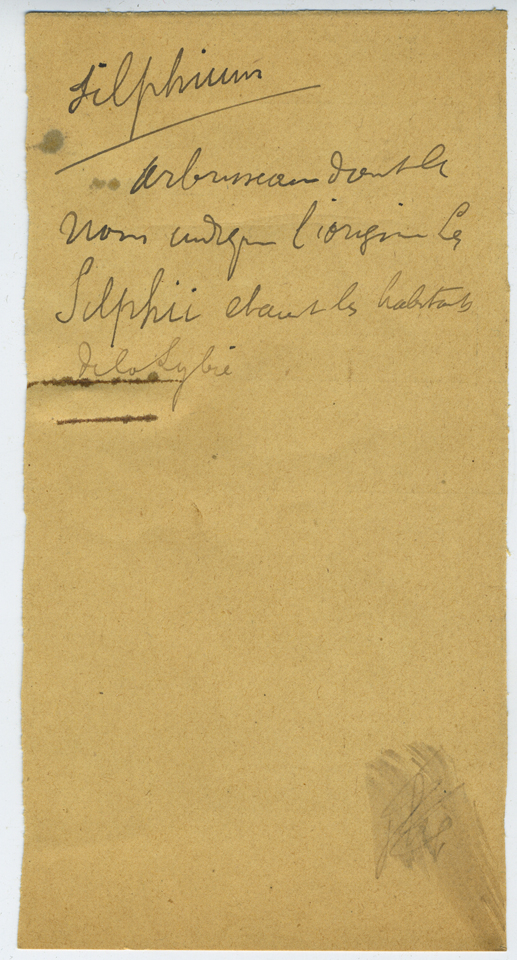 Silphium
arbrisseau dont le
nom indique l'origine les
Silphii étant les habitants
de la Lybie